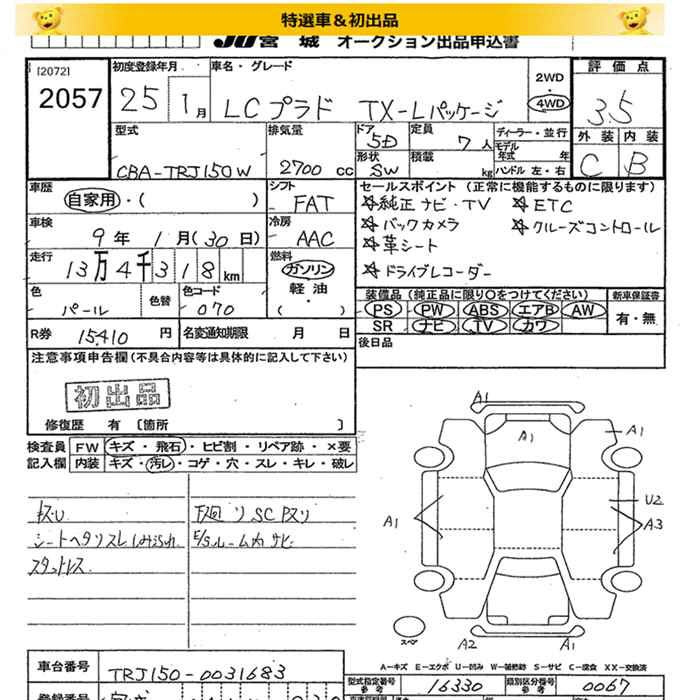 特選車＆初出品
JU宮城 オークション出品申込書
[2072]
2057
初度登録年月
25 1月
車名・グレード
LCプラド TX-Lパッケージ
2WD
4WD
評価点
3.5
外装 内装
C B
型式
CBA-TRJ150W
排気量
2700 cc
ドア
5D
形状
SW
定員
7人
積載
kg
ディーラー・並行
モデル年式 年
ハンドル 左・右
車歴
自家用・( )
シフト
FAT
車検
9年 1月(30日)
冷房
AAC
走行
13万4千318km
燃料
ガソリン
軽油
( )
色
パール
色替
色コード
070
R券 15410 円
名変通知期限 月 日
セールスポイント(正常に機能するものに限ります)
☆純正ナビ・TV ☆ETC
☆バックカメラ ☆クルーズコントロール
☆革シート
☆ドライブレコーダー
装備品(純正品に限り○をつけてください) 新車保証書
PS PW ABS エアB AW 有・無
SR ナビ TV カワ
後日品
注意事項申告欄(不具合内容等は具体的に記入して下さい)
初出品
修復歴 有 〔箇所 〕
検査員記入欄
FW キズ・飛石・ヒビ割・リペア跡・×要
内装 キズ・汚レ・コゲ・穴・スレ・キレ・破レ
キズU
シートヘタリスレしみられ
スタットレス
下廻りSCキズリ
E/Sルーム内サビ
A1
A1
A1
A1
U2
A3
スペア
A2
A1
A－キズ E－エクボ U－凹み W－補修跡 S－サビ C－腐食 XX－交換済
車台番号
TRJ150-0031683
型式指定番号
参考
16330
類別区分番号
参考
0067
登録番号